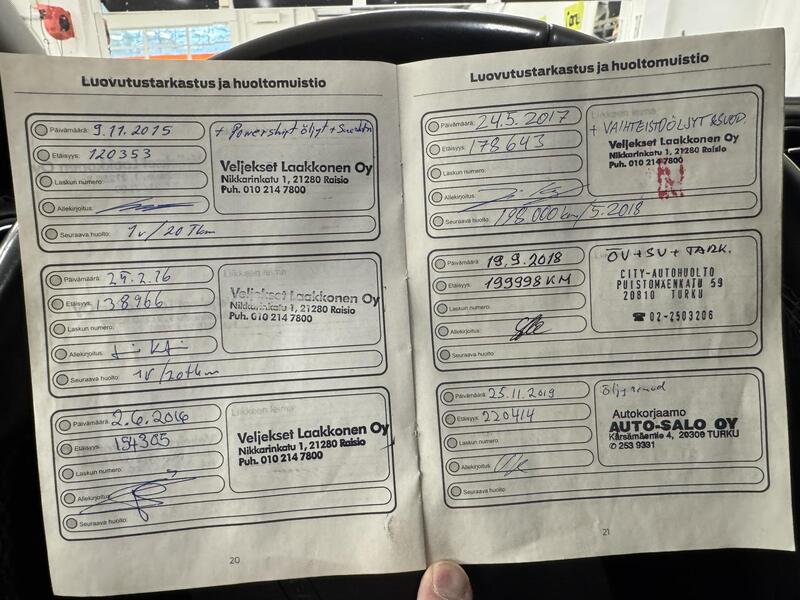 Luovutustarkastus ja huoltomuistio
Päivämäärä: 9.11.2015
Etäisyys: 120353
Laskun numero:
Allekirjoitus:
Seuraava huolto: 1v/20Tkm
+ Powershift öljyt + Suodatin
Veljekset Laakkonen Oy
Nikkarinkatu 1, 21280 Raisio
Puh. 010 214 7800
Päivämäärä: 25.2.16
Etäisyys: 138966
Laskun numero:
Allekirjoitus:
Seuraava huolto: 1v/20tkm
Liikkeen leima
Veljekset Laakkonen Oy
Nikkarinkatu 1, 21280 Raisio
Puh. 010 214 7800
Päivämäärä: 2.6.2016
Etäisyys: 154305
Laskun numero:
Allekirjoitus:
Seuraava huolto:
Liikkeen leima
Veljekset Laakkonen Oy
Nikkarinkatu 1, 21280 Raisio
Puh. 010 214 7800
20
Luovutustarkastus ja huoltomuistio
Päivämäärä: 24.5.2017
Etäisyys: 178643
Laskun numero:
Allekirjoitus:
Seuraava huolto: 198.000km/5.2018
+ VAIHTEISTOÖLJYT &SUOD.
Veljekset Laakkonen Oy
Nikkarinkatu 1, 21280 Raisio
Puh. 010 214 7800
Päivämäärä: 19.9.2018
Etäisyys: 199998 KM
Laskun numero:
Allekirjoitus:
Seuraava huolto:
ÖV + SV + TARK.
CITY-AUTOHUOLTO
PUISTOMAENKATU 59
20810 TURKU
☎ 02-2503206
Päivämäärä: 25.11.2019
Etäisyys: 220414
Laskun numero:
Allekirjoitus:
Seuraava huolto:
Autokorjaamo
AUTO-SALO OY
Kärsämäentie 4, 20300 TURKU
✆ 253 9331
21